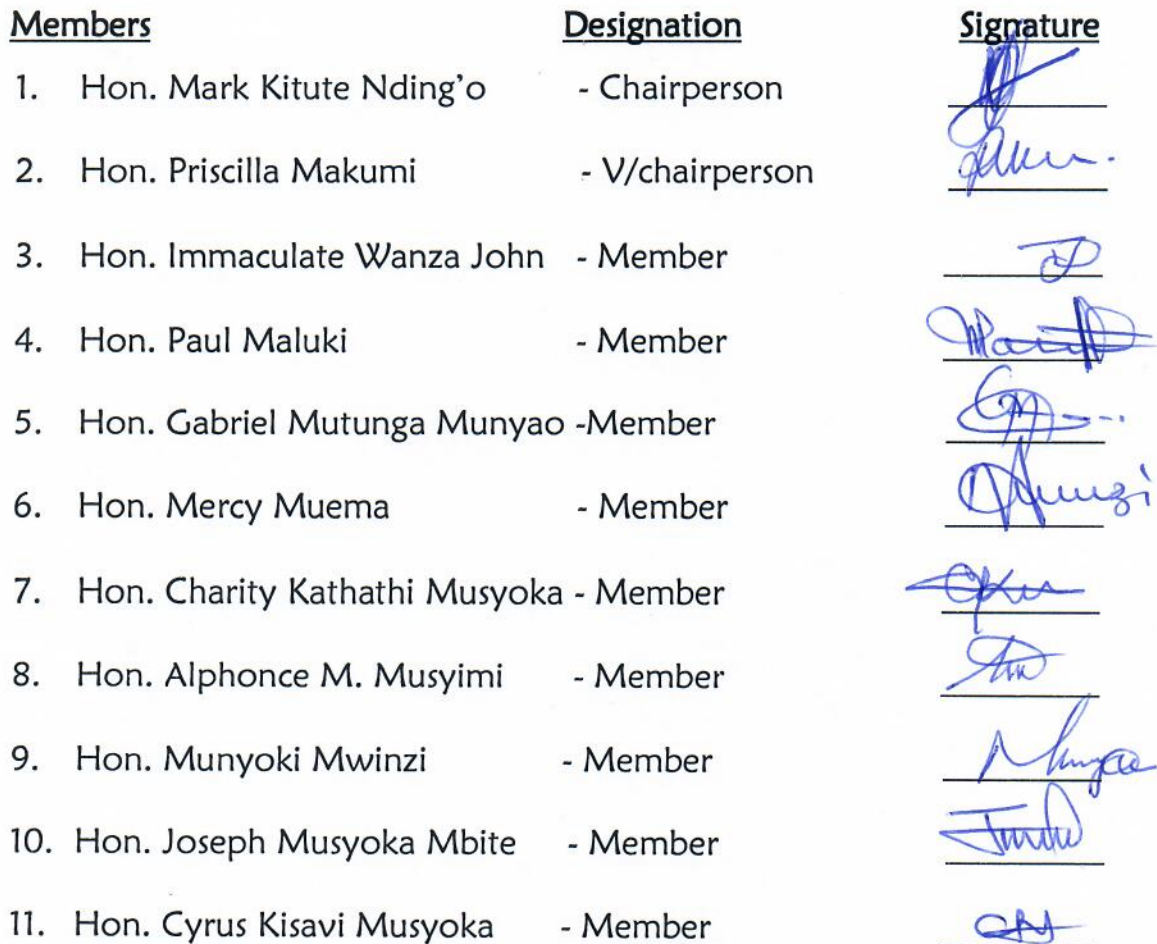 Members Designation Signature
1. Hon. Mark Kitute Nding'o - Chairperson
2. Hon. Priscilla Makumi - V/chairperson
3. Hon. Immaculate Wanza John - Member
4. Hon. Paul Maluki - Member
5. Hon. Gabriel Mutunga Munyao -Member
6. Hon. Mercy Muema - Member
7. Hon. Charity Kathathi Musyoka - Member
8. Hon. Alphonce M. Musyimi - Member
9. Hon. Munyoki Mwinzi - Member
10. Hon. Joseph Musyoka Mbite - Member
11. Hon. Cyrus Kisavi Musyoka - Member